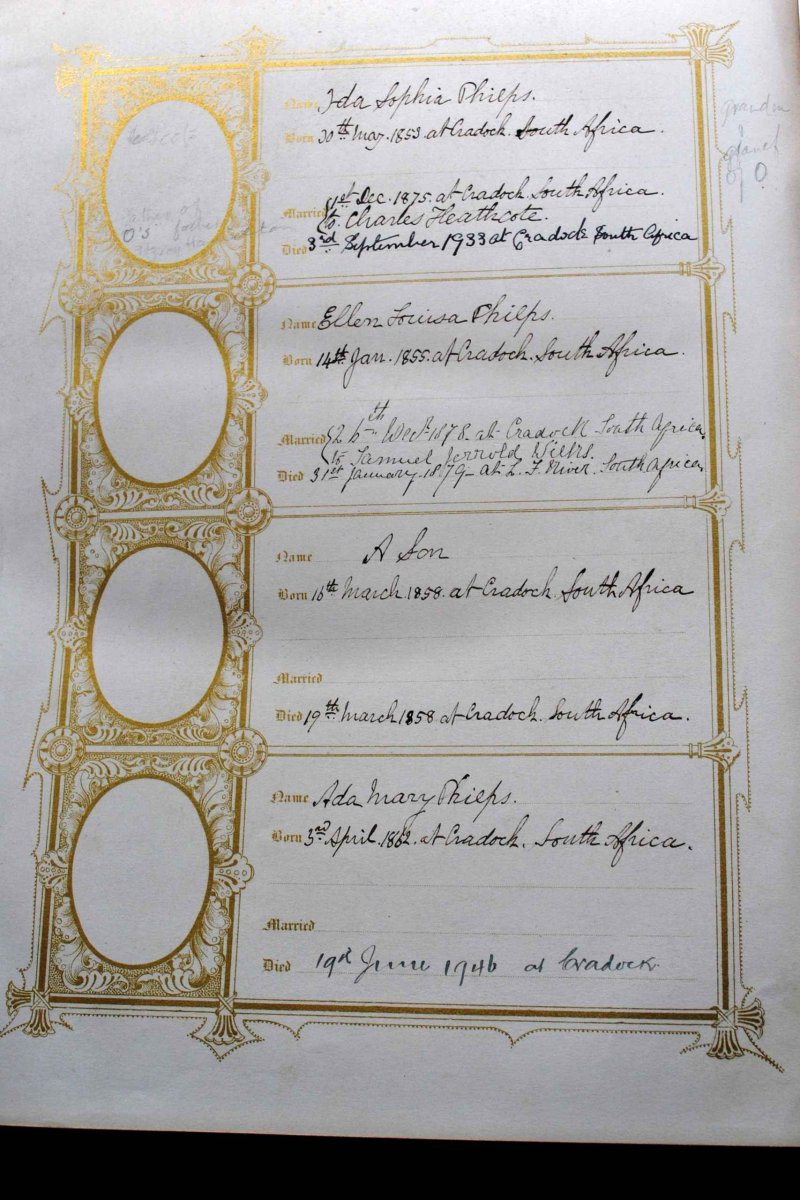 Name Ida Sophia Philps.
Born 30th May. 1853. at Cradock. South Africa.
1st Dec. 1875. at Cradock. South Africa.
Married to. Charles Heathcote.
Died 3rd September 1933 at Cradock South Africa
Name Ellen Louisa Philps.
Born 14th Jan. 1855. at Cradock. South Africa.
Married 26th Decr. 1878. at Cradock South Africa.
to Samuel Jerrold Wilks.
Died 31st January. 1879- at South Africa.
Name A Son
Born 16th March. 1858. at Cradock. South Africa
Married
Died 19th March 1858 at Cradock. South Africa.
Name Ada Mary Philps.
Born 3rd April. 1862. at Cradock. South Africa.
Married
Died 19th June 1946 at Cradock.
O's father
of O